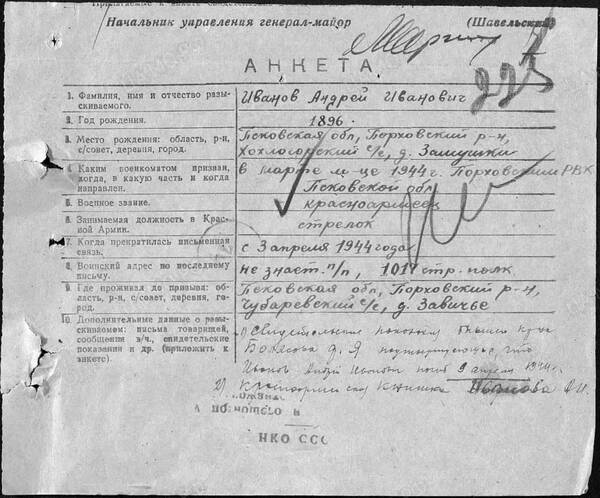 Начальник управления генерал-майор (Шавельский)
225
АНКЕТА
1. Фамилия, имя и отчество разыскиваемого.
Иванов Андрей Иванович
2. Год рождения.
1896.
3. Место рождения: область, р-н, с/совет, деревня, город.
Псковская обл, Порховский р-н,
с/с, д. Замушки
4. Каким военкоматом призван, когда, в какую часть и когда направлен.
в марте м-це 1944 г. Порховским РВК
Псковской обл
5. Военное звание.
красноармеец
6. Занимаемая должность в Красной Армии.
стрелок
7. Когда прекратилась письменная связь.
с 3 апреля 1944 года
8. Воинский адрес по последнему письму.
не знает п/п, 1017 стр. полк
9. Где проживал до призыва: область, р-н, с/совет, деревня, город.
Псковская обл, Порховский р-н,
Чубаревский с/с, д. Завичье
10. Дополнительные данные о разыскиваемом: письма товарищей, сообщения в/ч., свидетельские показания и др. (приложить к анкете).
1) показан
что
Иванов Иванович 9 апреля 1944 г.
2) Красноармейская книжка Иванова А И.
НКО ССС